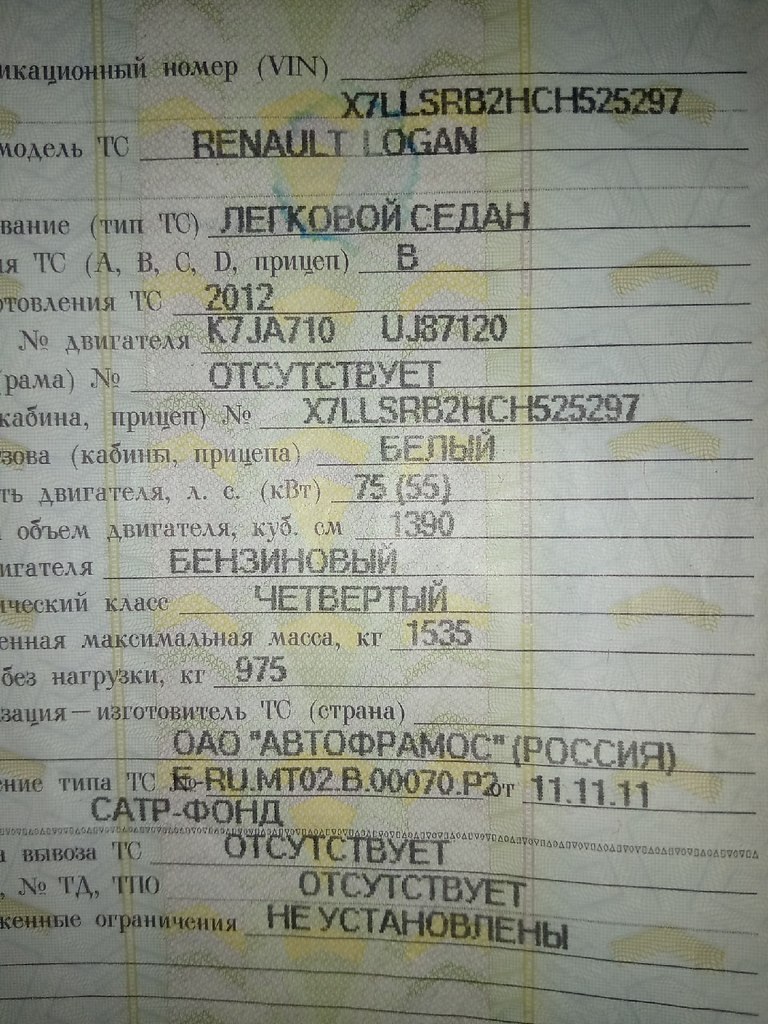 икационный номер (VIN)
X7LLSRB2HCH525297
модель ТС RENAULT LOGAN
вание (тип ТС) ЛЕГКОВОЙ СЕДАН
ия ТС (A, B, C, D, прицеп) B
отовления ТС 2012
№ двигателя K7JA710 UJ87120
рама) № ОТСУТСТВУЕТ
кабина, прицеп) № X7LLSRB2HCH525297
зова (кабины, прицепа) БЕЛЫЙ
ть двигателя, л. с. (кВт) 75 (55)
объем двигателя, куб. см 1390
игателя БЕНЗИНОВЫЙ
ический класс ЧЕТВЕРТЫЙ
енная максимальная масса, кг 1535
без нагрузки, кг 975
зация—изготовитель ТС (страна)
ОАО "АВТОФРАМОС" (РОССИЯ)
ение типа ТС № E-RU.MT02.B.00070.P2 от 11.11.11
САТР-ФОНД
а вывоза ТС ОТСУТСТВУЕТ
, № ТД, ТПО ОТСУТСТВУЕТ
женные ограничения НЕ УСТАНОВЛЕНЫ